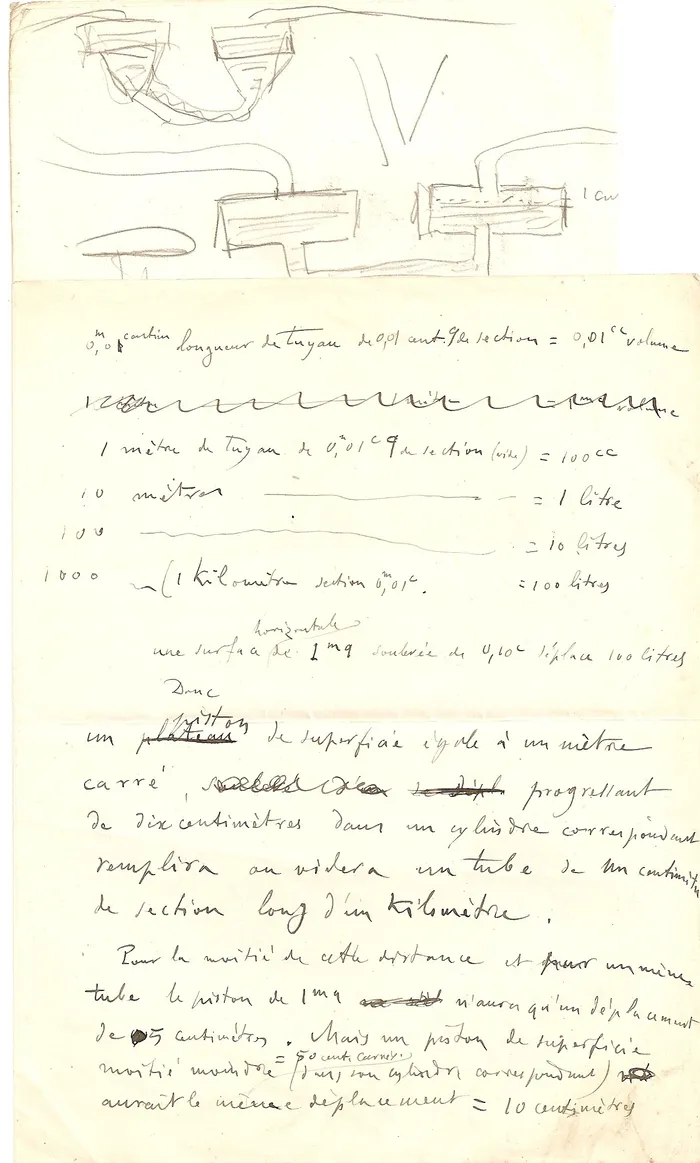 1 cm
0,^m01 centim longueur de tuyau de 0,01 cent. q de section = 0,01^cc volume
volume
1 mètre de tuyau de 0,^m01^c q de section (vide) = 100^cc
10 mètres = 1 litre
100 = 10 litres
1000 (1 Kilomètre section 0,^m01^c. = 100 litres
horizontale
une surface de 1^mq soulevée de 0,10^c déplace 100 litres
Donc
piston
un plateau de superficie égale à un mètre
carré, progressant
de dix centimètres dans un cylindre correspondant
remplira ou videra un tube de un centimètre
de section long d'un Kilomètre.
Pour la moitié de cette distance et pour un même
tube le piston de 1^mq n'aura qu'un déplacement
de 5 centimètres. Mais un piston de superficie
= 50 centi carrés
moitié moindre (dans son cylindre correspondant)
aurait le même déplacement = 10 centimètres